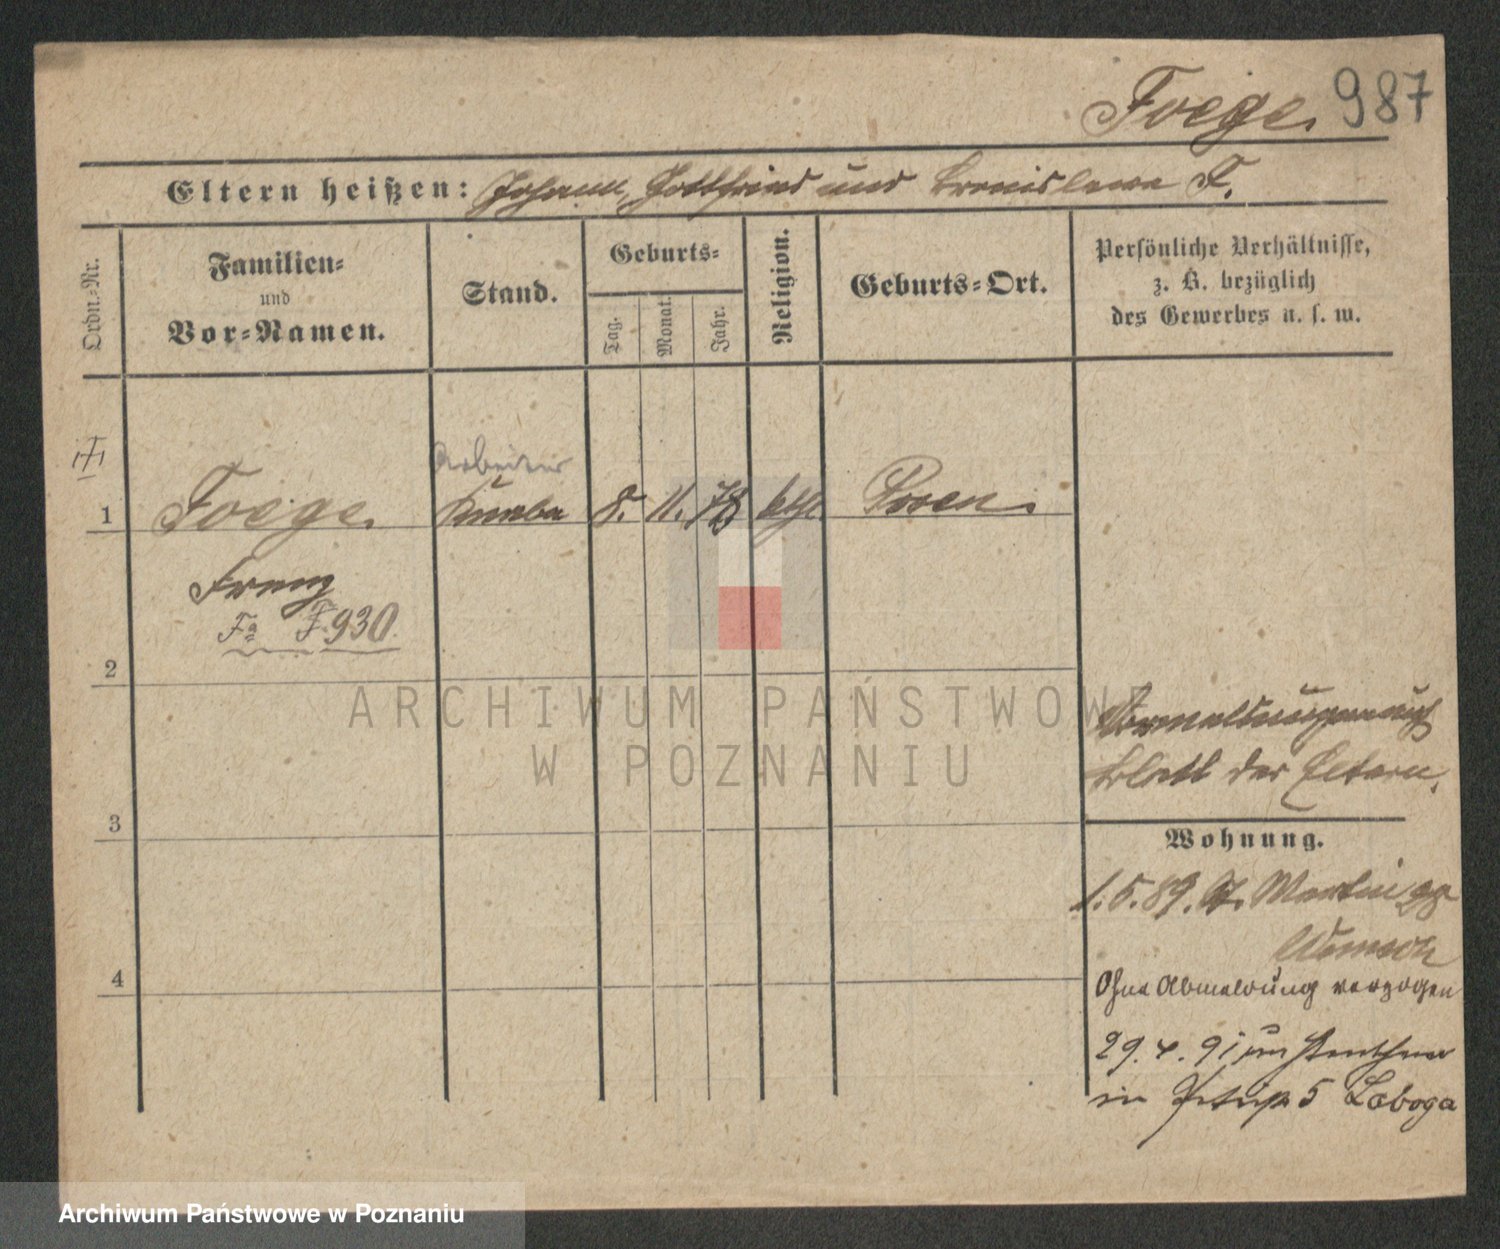 Foege. 987
Eltern heißen: Johann, Gottfried und Bronislawa F.
Ordn.-Nr.
Familien-
und
Vor-Namen.
Stand.
Geburts-
Tag.
Monat.
Jahr.
Religion.
Geburts-Ort.
Persönliche Verhältnisse,
z. B. bezüglich
des Gewerbes u. s. w.
Arbeiter
1 Foege. Knabe 8. 11. 78 kth. Posen.
Franz
Fa F.930.
2
ARCHIWUM PAŃSTWOWE
W POZNANIU
Blatt der Eltern.
3
Wohnung.
1.5.89. St. Martin
4
Ohne Abmeldung verzogen
29.4.91
in 5 Laboga
Archiwum Państwowe w Poznaniu